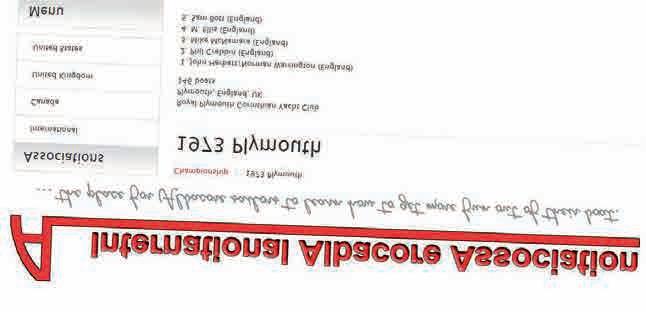 International Albacore Association
... the place for Albacore sailors to learn how to get more fun out of their boat.
Championship 1973 Plymouth
Associations
International
Canada
United Kingdom
United States
Menu
1973 Plymouth
Royal Plymouth Corinthian Yacht Club
Plymouth, England, UK
146 boats
1. John Harbatt/Norman Warington (England)
2. Phil Crebbin (England)
3. Mike McNamara (England)
4. M. Ellis (England)
5. Sam Bott (England)